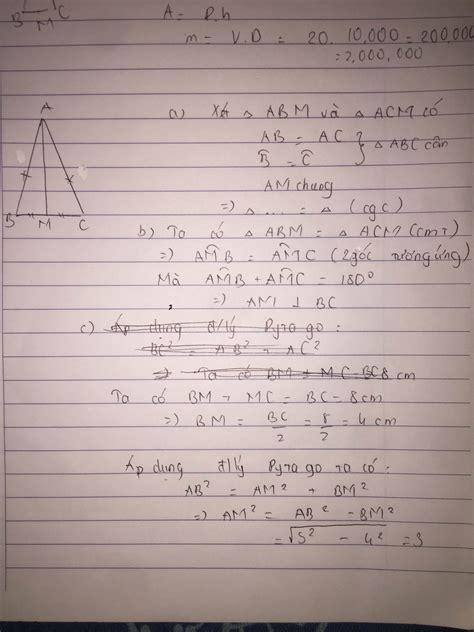 B M C
A = P.h
m = V.D = 20. 10,000 = 200,000
= 2,000,000
A
B M C
a) Xét △ ABM và △ ACM có
AB = AC
B̂ = Ĉ } △ ABC cân
AM chung
=) △ ... = △ (cgc)
b) Ta có △ ABM = △ ACM (cmt)
=) AM̂B = AM̂C (2 góc tương ứng)
Mà AM̂B + AM̂C = 180°
=) AM ⊥ BC
c) Áp dụng đ/lý Pytago :
BC² = AB² + AC²
=) Ta có BM + MC = BC 8 cm
Ta có BM + MC = BC = 8cm
=) BM = BC/2 = 8/2 = 4 cm
Áp dụng đ/lý Pytago ta có :
AB² = AM² + BM²
=) AM² = AB² - BM²
= √5² - 4² = 3